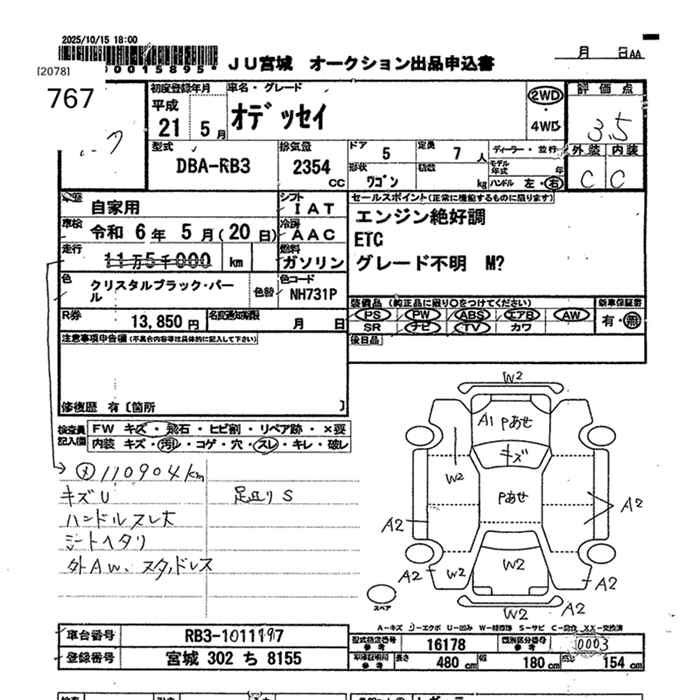 2025/10/15 18:00
[2078]
0015895*
767
JU宮城 オークション出品申込書
月 日AA
初度登録年月
平成
21 5月
車名・グレード
オデッセイ
2WD
・
4WD
評価点
3.5
外装 内装
C C
型式
DBA-RB3
排気量
2354
CC
ドア
5
定員
7人
形状
ワゴン
積数
kg
ディーラー・並行
モデル年式 年
ハンドル 左・右
自家用
車検
令和 6年 5月(20日)
走行
11万5千000 km
シフト
IAT
冷房
AAC
燃料
ガソリン
色
クリスタルブラック・パール
色替
色コード
NH731P
R券
13,850円
名変通知期限
月 日
セールスポイント(正常に機能するものに限ります)
エンジン絶好調
ETC
グレード不明 M?
装備品(純正品に限り○をつけてください)
PS PW ABS エアB AW
SR ナビ TV カワ
新車保証書
有・無
後日品
注意事項申告欄(不具合内容等は具体的に記入して下さい)
修復歴 有〔箇所 〕
検査員記入欄
FW キズ・飛石・ヒビ割・リペア跡・×要
内装 キズ・汚レ・コゲ・穴・スレ・キレ・破レ
110904km
キズU
足廻りS
ハンドルスレ大
シートヘタリ
外AW、スタッドレス
W2
A1 Pあせ
キズ
W2
Pあせ
A2
A2
W2
W2
A2
A2
W2
A2
スペア
A-キズ
W-修理跡 S-サビ C-腐食 XX-交換済
車台番号
RB3-1011197
登録番号
宮城 302 ち 8155
型式指定番号
参考
16178
類別区分番号
参考
0003
参考
長さ
480 cm
幅
180 cm
高さ
154 cm